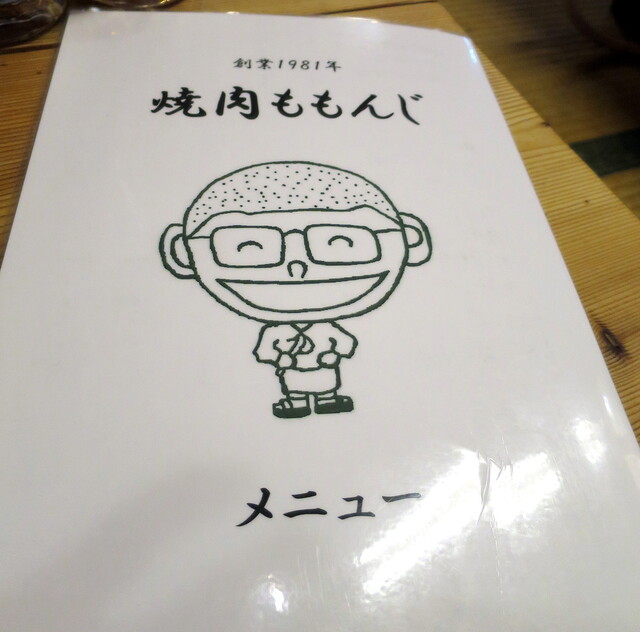 創業1981年
焼肉ももんじ
メニュー